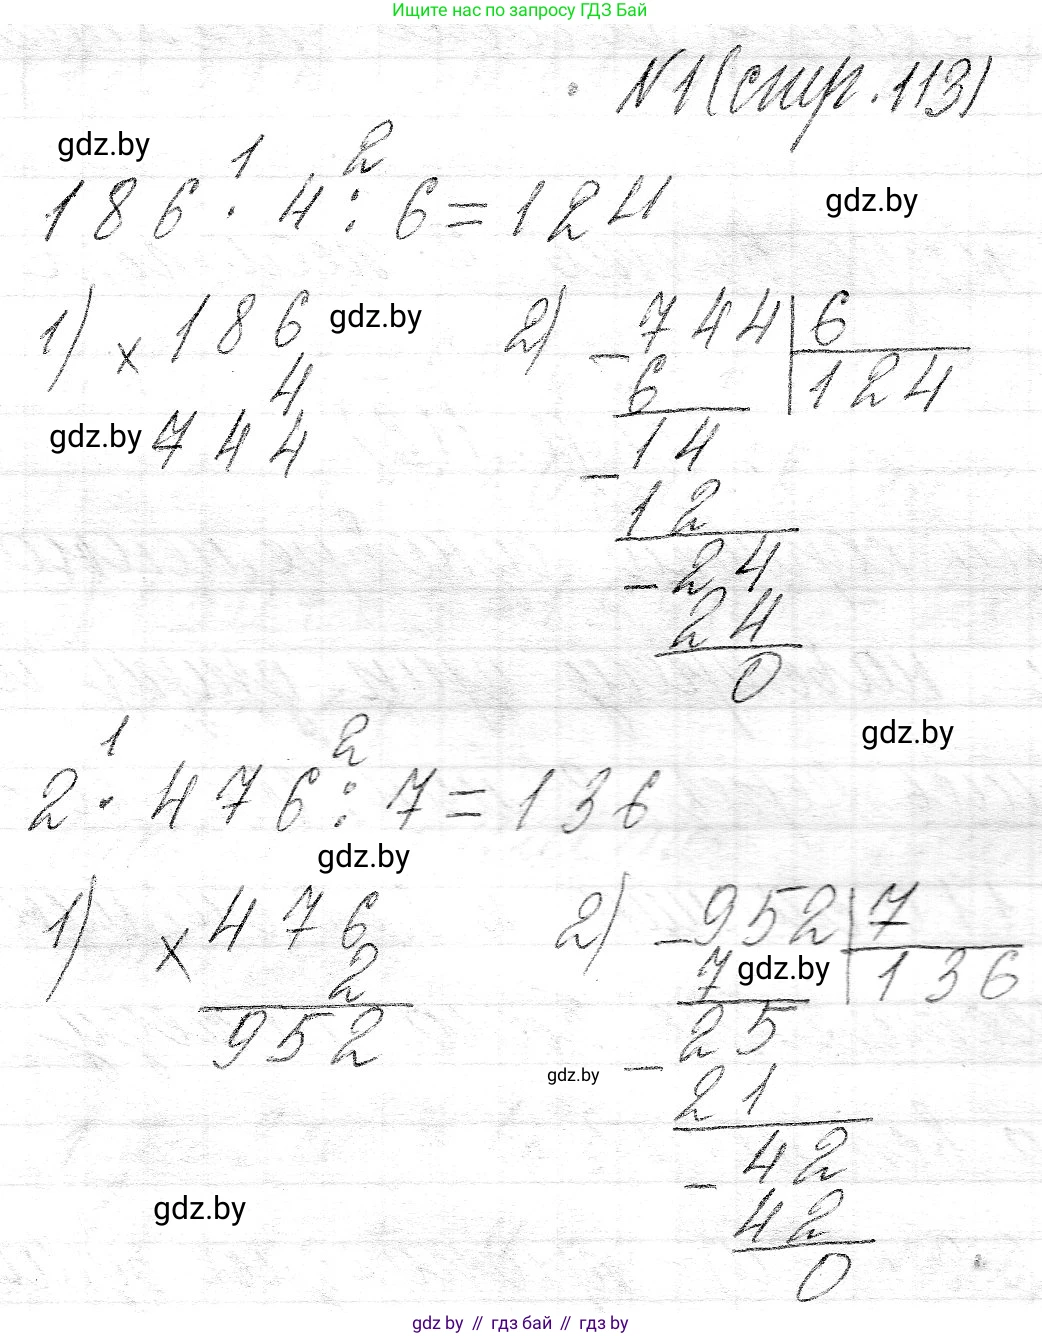 Ищите нас по запросу ГДЗ Бай
№1 (стр. 113)
gdz.by
1 2
186 · 4 : 6 = 124
gdz.by
1) × 186 gdz.by 2) − 744 | 6
4 6 124
gdz.by 744 − 14
12
− 24
24
0
gdz.by
1 2
2 · 476 : 7 = 136
gdz.by
1) × 476 2) − 952 | 7
2 7 gdz.by 136
952 − 25
gdz.by
21
− 42
gdz.by 42
0
gdz.by // гдз бай // gdz.by